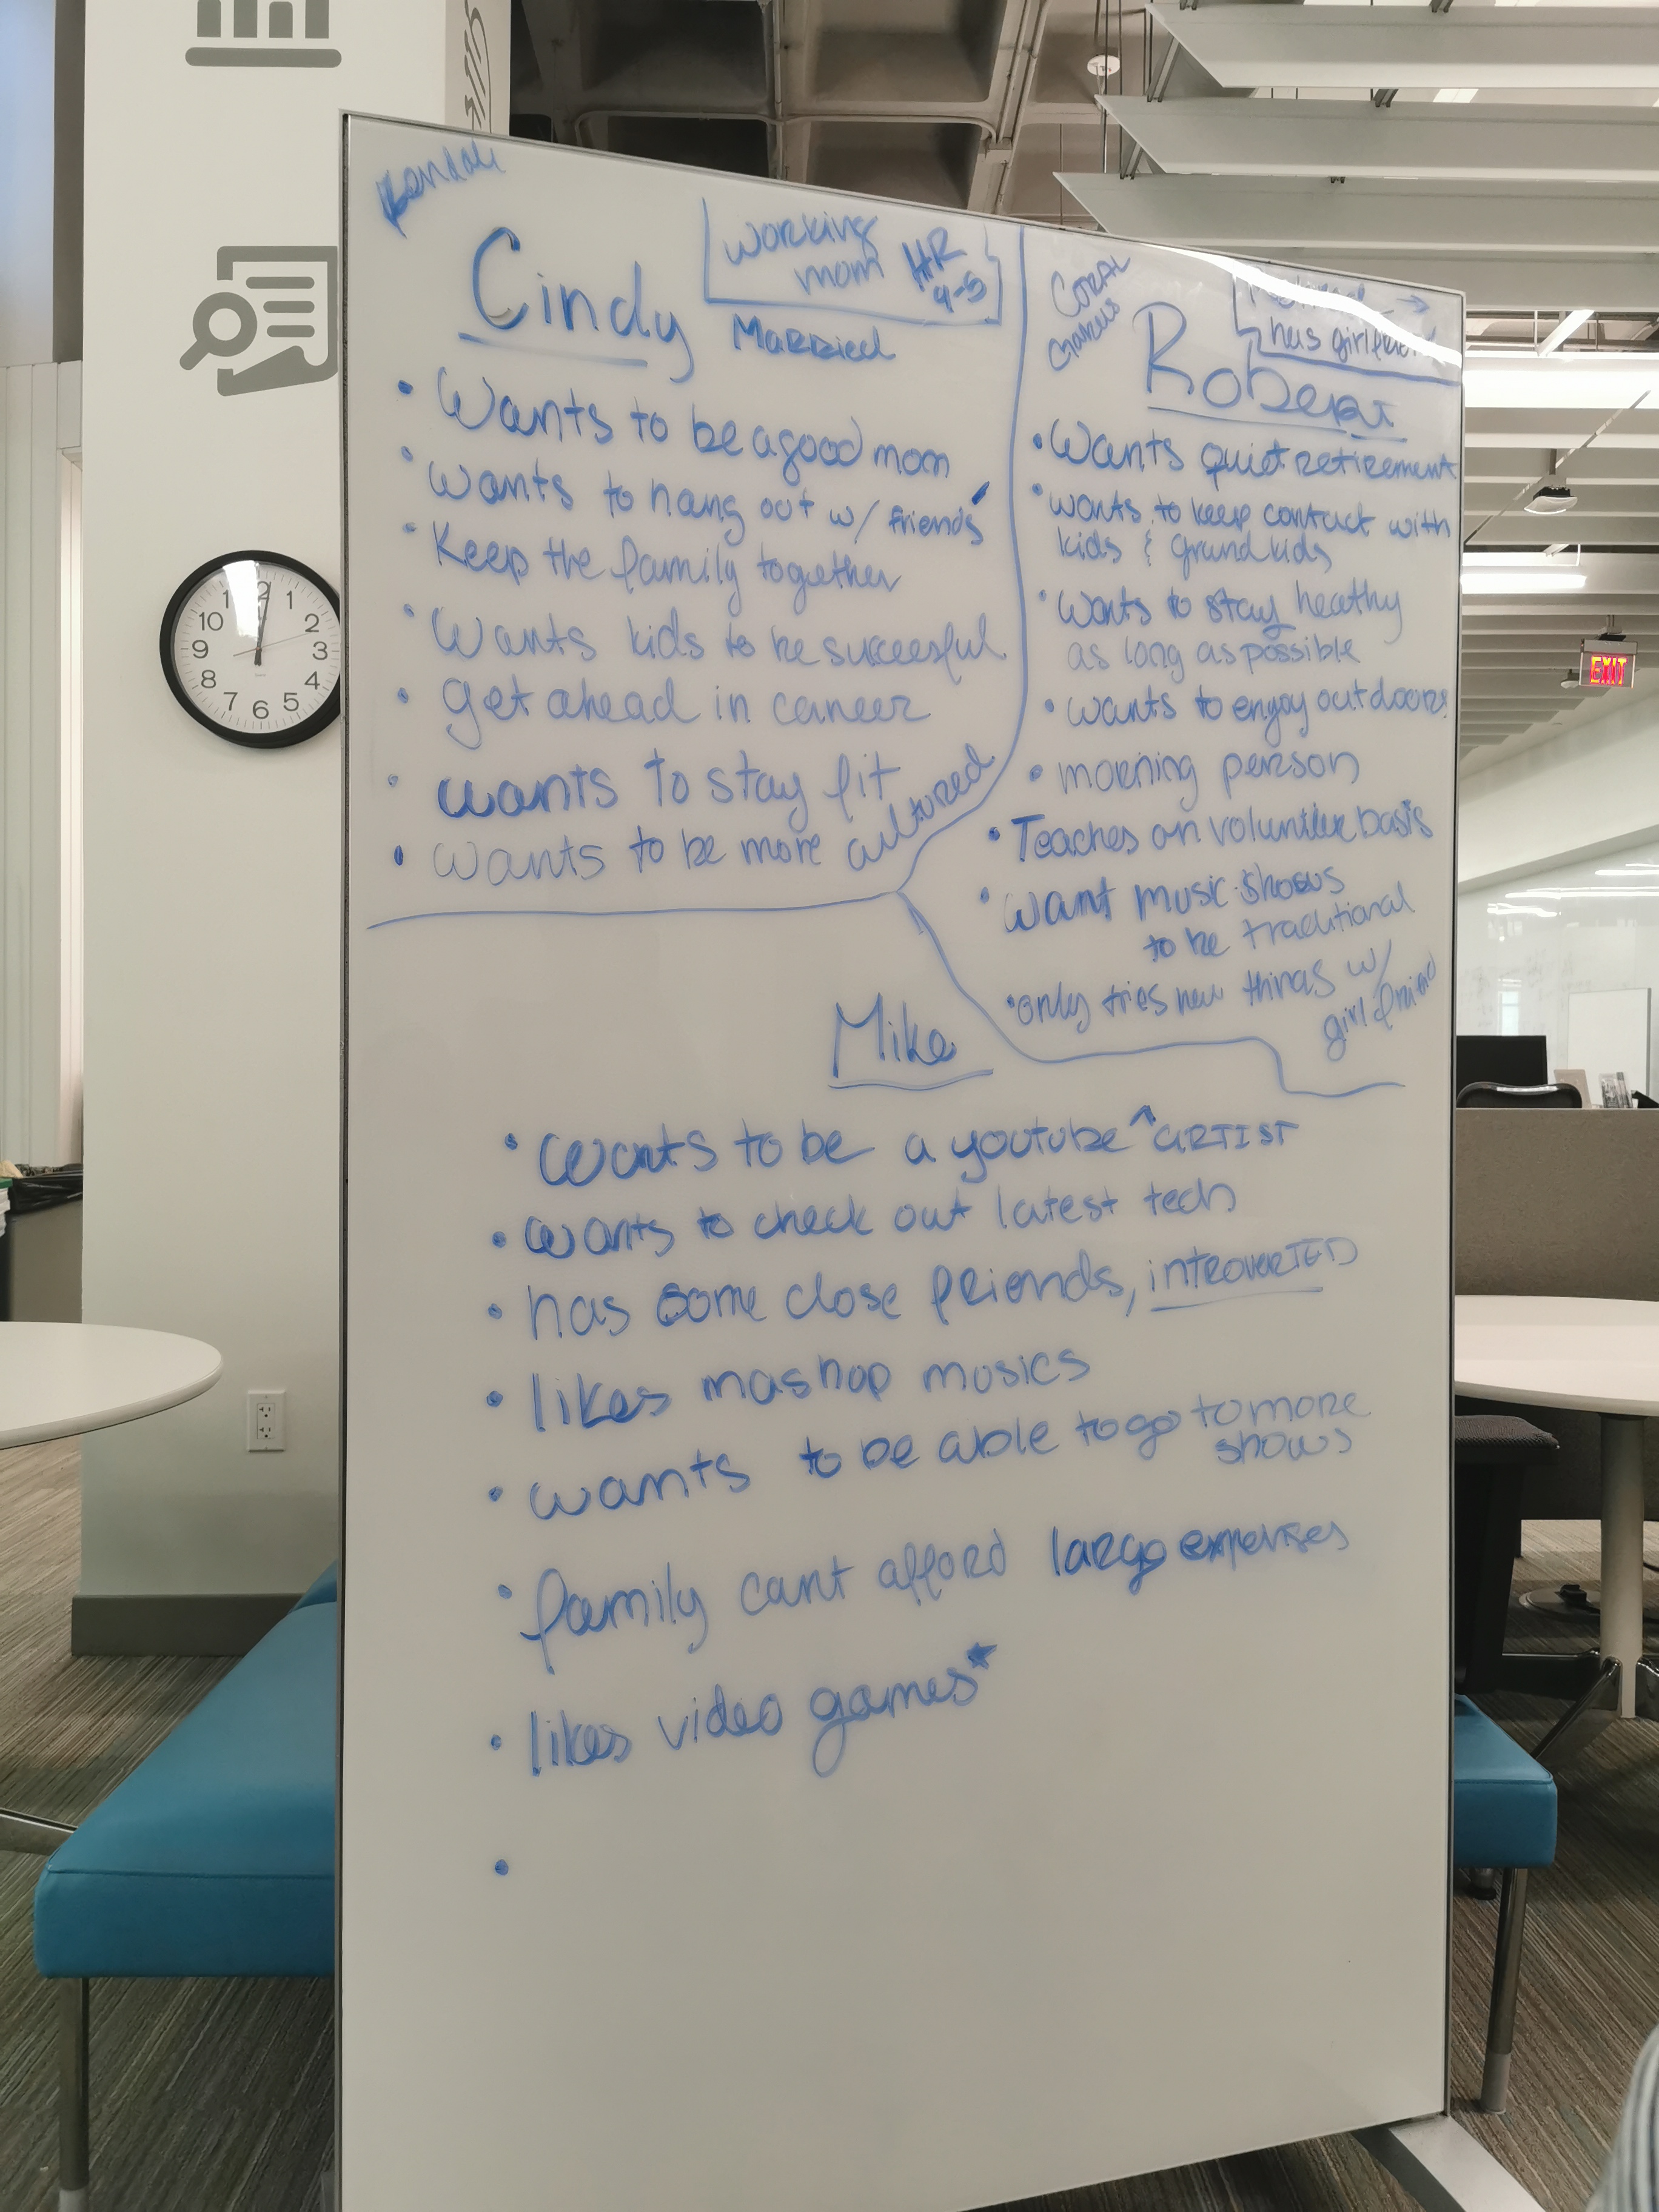 Cindy
working
mom HR
9-5
Married
• Wants to be a good mom
• Wants to hang out w/ friends
• Keep the family together
• Wants kids to be successful
• get ahead in career
• wants to stay fit
• wants to be more cultured
CORAL
has girlfriend
Robert
• Wants quiet retirement
• wants to keep contact with
kids & grandkids
• Wants to stay healthy
as long as possible
• wants to enjoy outdoors
• morning person
• Teaches on volunteer basis
• want music shows
to be traditional
• only tries new things w/
girlfriend
Mike
• Wants to be a youtube ^ ARTIST
• wants to check out latest tech
• has some close friends, INTROVERTED
• likes mashup musics
• wants to be able to go to more
shows
• family cant afford large expenses
• likes video games*
•
12
1
2
3
4
5
6
7
8
9
10
1
EXIT